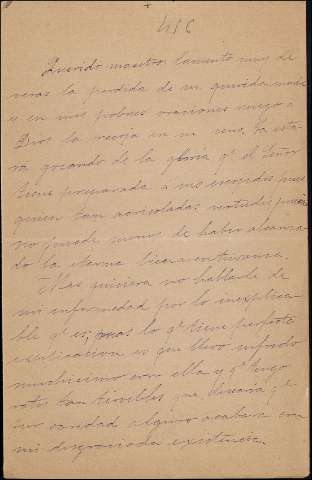 415
Querido maestro: lamento muy de
veras la perdida de su querida madre
y en mis pobres oraciones ruego a
Dios la recoja en su seno. Ya esta-
rá gozando de la gloria qe el Señor
tiene preparada a sus escojidos pues
quien tan acrisoladas virtudes poseia
no puede menos de haber alcanza-
do la eterna bienaventuranza.
Mas quisiera no hablarle de
mi enfermedad por lo inexplica-
ble qe es; mas lo qe tiene perfecta
explicacion es que llevo sufrido
muchisimo con ella y qe tengo
ratos tan terribles que desearia qe
por caridad alguno acabara con
mi desgraciada existencia.